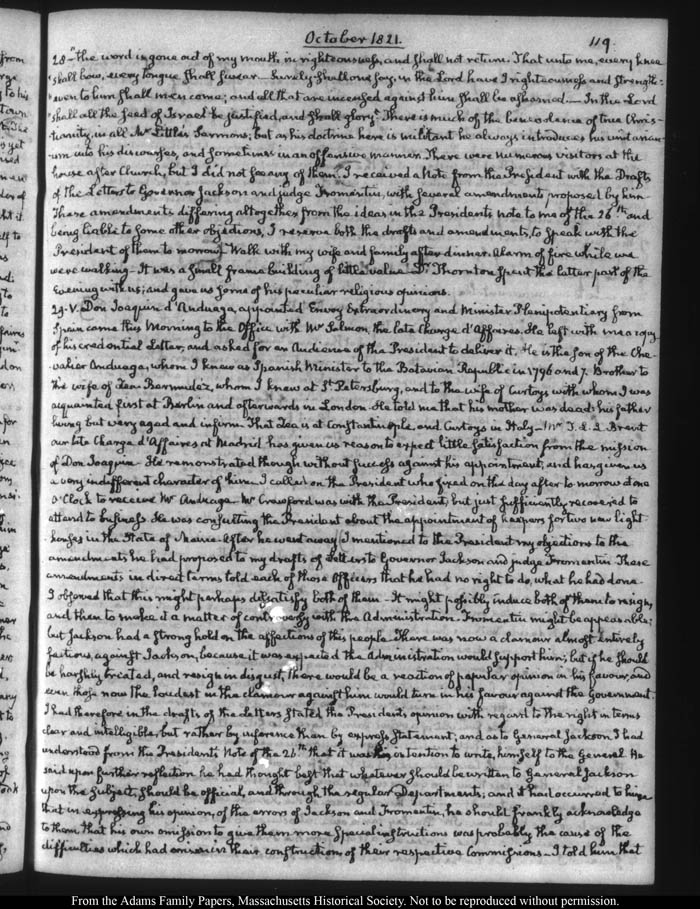 October 1821.
119.
28- "the word is gone out of my mouth in righteousness, and shall not return. That unto me, every knee
"shall bow, every tongue shall swear—Surely shall one say, in the Lord have I righteousness and strength:
"even to him shall men come; and all that are incensed against him shall be ashamed.— In the Lord
"shall all the seed of Israel be justified, and shall glory." There is much of the benevolence of true Chris-
tianity, in all Mr Little's Sermons; but as his doctrine here is militant he always introduces his unitarian-
ism into his discourses, and sometimes in an offensive manner. There were numerous visitors at the
house after Church, but I did not see any of them. I received a Note from the President with the Drafts
of the Letters to Governor Jackson and judge Fromentin, with several amendments proposed by him.
These amendments differing altogether from the ideas in the Presidents note to me of the 26th and
being liable to some other objections, I reserve both the drafts and amendments, to speak with the
President of them to morrow. Walk with my wife and family after dinner. Alarm of fire while we
were walking— It was a small frame building of little value. Dr Thornton spent the latter part of the
Evening with us; and gave us some of his peculiar religious opinions.
29. V. Don Joaquin d'Anduaga, appointed Envoy Extraordinary and Minister Plenipotentiary from
Spain came this Morning to the Office with Mr Salmon, the late Chargé d'Affaires. He left with me a copy
of his credential Letter, and asked for an Audience of the President to deliver it. He is the son of the Che-
valier Anduaga, whom I knew as Spanish Minister to the Batavian Republic in 1796 and 7. Brother to
the wife of Zea Bermudez, whom I knew at St. Petersburg, and to the wife of Curtoys with whom I was
acquainted first at Berlin and afterwards in London. He told me that his mother was dead; his father
living but very aged and infirm. That Zea is at Constantinople and Curtoys in Italy— Mr T. L. L. Brent
our late Chargé d'Affaires at Madrid has given us reason to expect little satisfaction from the mission
of Don Joaquin. He remonstrated though without success against his appointment, and has given us
a very indifferent character of him. I called on the President who fixed on the day after to morrow at one
O'Clock to receive Mr Anduaga. Mr Crawford was with the President, but just sufficiently recovered to
attend to business. He was consulting the President about the appointment of keepers for two new light
houses in the State of Maine. After he went away I mentioned to the President my objections to the
amendments he had proposed to my drafts of Letters to Governor Jackson and judge Fromentin. These
amendments in direct terms told each of those Officers that he had no right to do, what he had done.
I observed that this might perhaps dissatisfy both of them— It might possibly induce both of them to resign,
and then to make it a matter of controversy with the Administration. Fromentin might be appeasable;
but Jackson had a strong hold on the affections of this people. There was now a clamour almost entirely
factious, against Jackson, because it was expected the Administration would support him; but if he should
be harshly treated, and resign in disgust, there would be a reaction of popular opinion in his favour, and
even those now the loudest in the clamour against him would turn in his favour against the Government.
I had therefore in the drafts of the letters stated the Presidents opinion with regard to the right in terms
clear and intelligible, but rather by inference than by express Statement; and as to General Jackson I had
understood from the Presidents Note of the 26th that it was his intention to write, himself to the General. He
said upon further reflection he had thought best that whatever should be written to General Jackson
upon the subject, should be official, and through the regular Departments; and it had occurred to him
that in expressing his opinion, of the errors of Jackson and Fromentin, he should frankly acknowledge
to them that his own omission to give them more special instructions was probably the cause of the
difficulties which had arisen in their construction, of their respective Commissions— I told him that
From the Adams Family Papers, Massachusetts Historical Society. Not to be reproduced without permission.